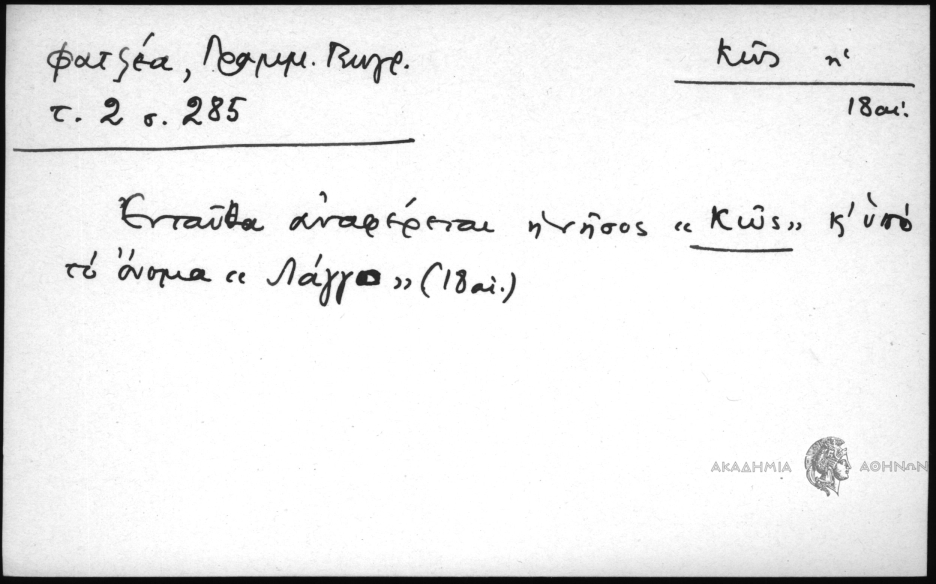 Φατζέα, Γραμμ. Γεωγρ.
τ. 2 σ. 285
Κῶς ἡ
18 αἰ.
Ἐνταῦθα ἀναφέρεται ἡ νῆσος « Κῶς » κ' ὑπό
τό ὄνομα « Λάγγο » (18 αἰ.)
ΑΚΑΔΗΜΙΑ ΑΘΗΝΩΝ